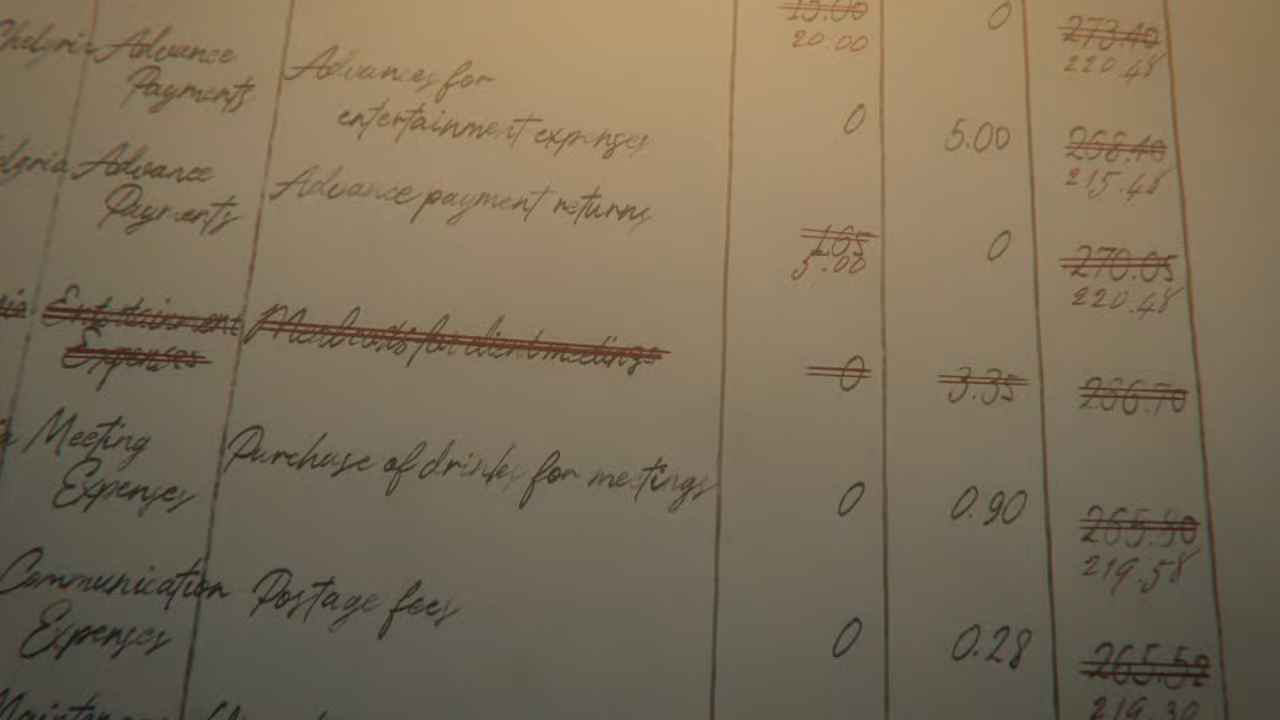 15.00 0 273.40
20.00 220.48
Advance
Payments
Advances for
entertainment expenses
0 5.00 268.40
215.48
Advance
Payments
Advance payment returns
1.65 0 270.05
5.00 220.48
Entertainment
Expenses
for client meetings
0 3.35 266.70
Meeting
Expenses
Purchase of drinks for meetings
0 0.90 265.80
219.58
Communication
Expenses
Postage fees
0 0.28 265.52
219.30